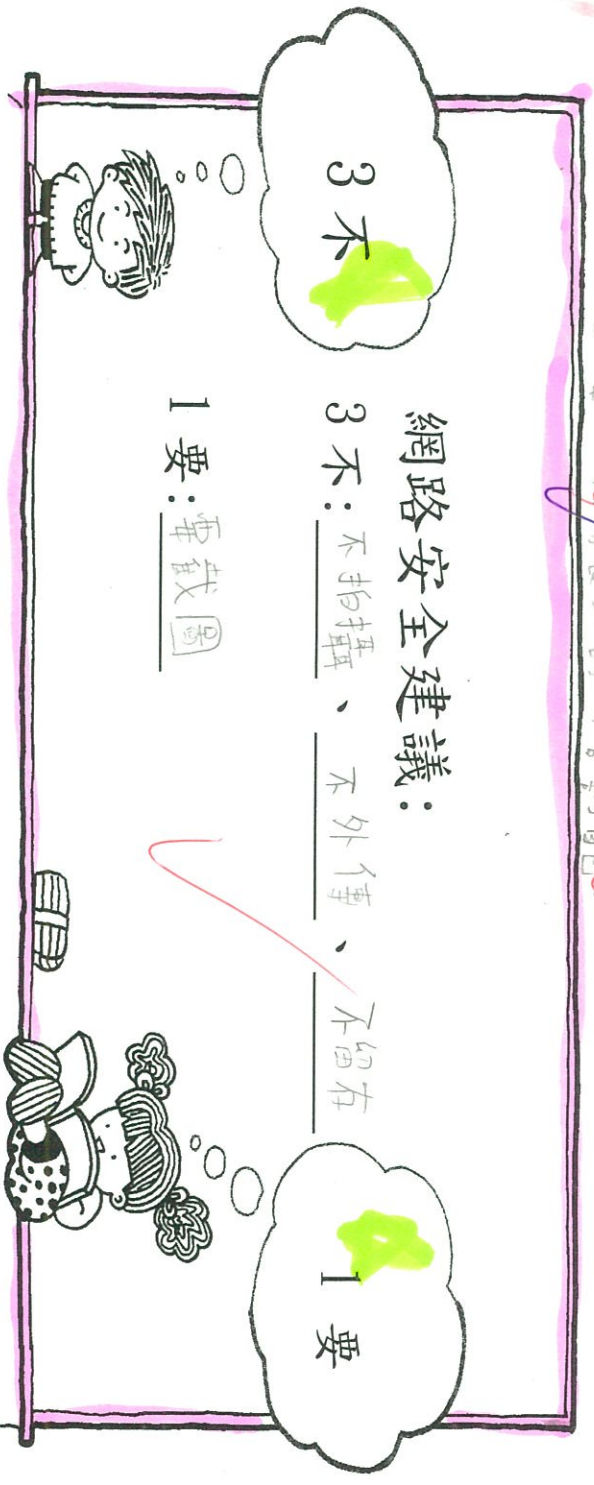 3不
網路安全建議：
3不：不拍攝、不外傳、不留存
1要：要截圖
1要